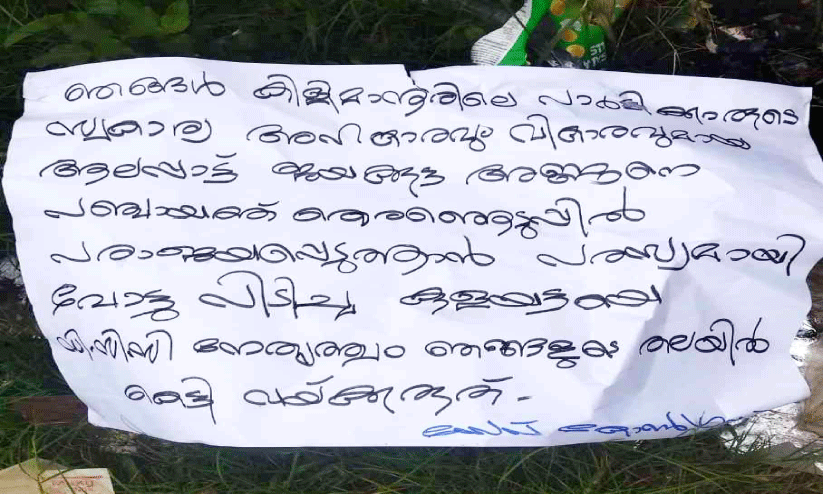 ഞങ്ങൾ കിള്ളിമാനൂരിലെ പാർട്ടിക്കാരുടെ
സ്വകാര്യ അഹങ്കാരവും വികാരവുമായ
ആലപ്പാട്ട് ജയകുമാർ അണ്ണനെ
പഞ്ചായത്ത് തെരഞ്ഞെടുപ്പിൽ
പരാജയപ്പെടുത്താൻ പരസ്യമായി
വോട്ടു പിടിച്ച
ഡിസിസി നേതൃത്വം ഞങ്ങളുടെ തലയിൽ
കെട്ടി വയ്ക്കരുത്.
സേവ്